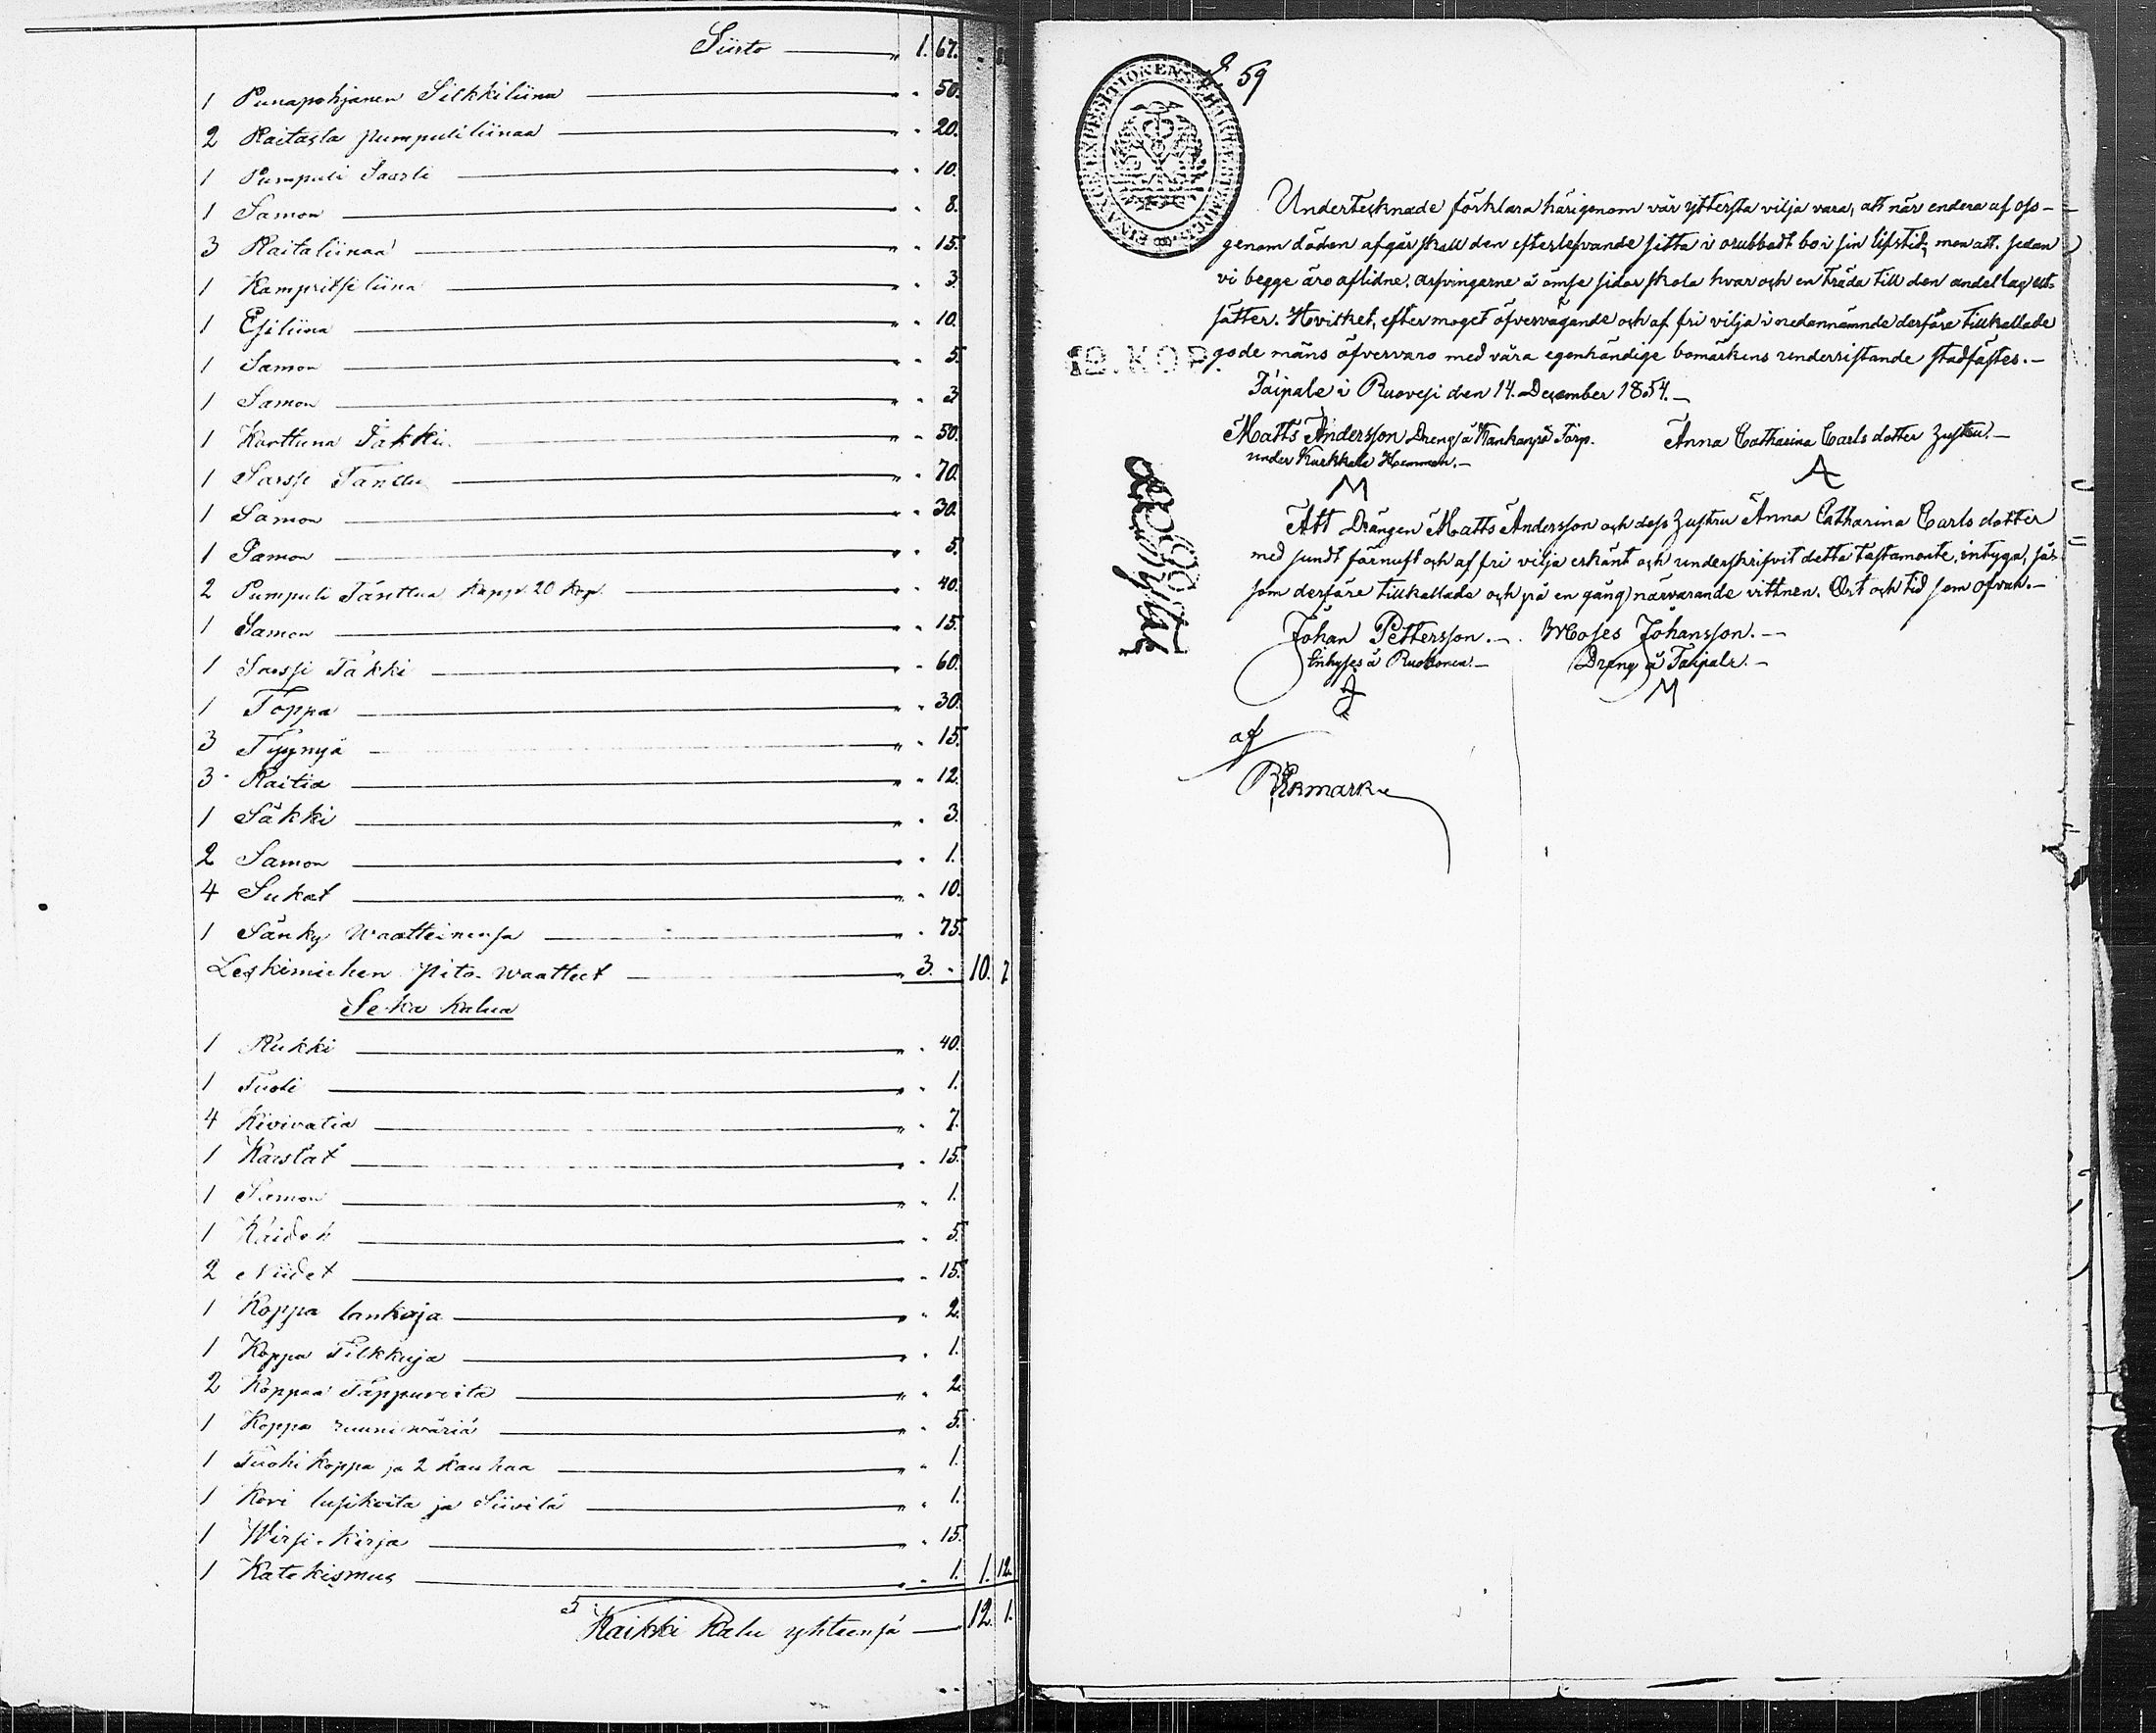 Siirto — " 1. 67.
1 Punapohjanen Silkkiliina — " " 50.
2 Raitasta pumpuliliinaa — " " 20.
1 Pumpuli Saarli — " " 10.
1 Samon — " " 8.
3 Raitaliinaa — " " 15.
1 Kampritsiliina — " " 3.
1 Esiliina — " " 10.
1 Samon — " " 5.
1 Samon — " " 3.
1 Karttuna Täkki — " " 50.
1 Sarssi Tänttu — " " 70.
1 Samon — " " 30.
1 Samon — " " 5.
2 Pumpuli Tänttua kapp. 20 kop. — " " 40.
1 Samon — " " 15.
1 Sarssi Täkki — " " 60.
1 Toppa — " " 30.
3 Tyynyä — " " 15.
3 Raitia — " " 12.
1 Säkki — " " 3.
2 Samon — " " 1.
4 Sukat — " " 10.
1 Sänky Waatteinensa — " 75.
Leskimiehen pito-waatteet — " 3. " 10. 7
Seka kalua
1 Rukki — " " 40.
1 Tuoli — " " 1.
4 Kivivatia — " " 7.
1 Kärstät — " " 15.
1 Samon — " " 1.
1 Kaidet — " " 5.
2 Niidet — " " 15.
1 Koppa lankoja — " " 2.
1 Koppa Tilkkuja — " " 1.
2 Koppaa Tappureita — " " 2.
1 Koppa ruuniwäriä — " " 5.
1 Tuohikoppa ja 2 kauhaa — " " 1.
1 Kori lusikoita ja Siivilä — " " 1.
1 Wirsi-kirja — " " 15.
1 Katekismus — " " 1. 1. 12.
Kaikki Kalu yhteensä — 12. 1.
59
Undertecknade förklara härigenom vår yttersta vilja vara, att när endera af oss
genom döden afgår skall den efterlefvande sitta i orubbadt bo i sin lifstid, men att sedan
vi begge äro aflidne, arfvingarne å ömse sidor skola hvar och en träda till den andel lag ut-
sätter. Hvilket, efter moget öfvervägande och af fri vilja i nedannämnde derföre tillkallade
12. KOP. gode mäns öfvervaro med våra egenhändige bomärkens undersistande stadfästes.
Taipale i Ruovesi den 14. December 1854.
Matts Andersson Dreng å Kankanpä Torp. Anna Catharina Carls dotter Hustru.
under Kurkkala Hemman.
M A
Att Drängen Matts Andersson och dess Hustru Anna Catharina Carls dotter
med sundt förnuft och af fri vilja erkänt och underskrifvit detta testamente, intyga, så-
som derföre tillkallade och på en gång närvarande vittnen. Ort och tid som ofvan.
Johan Pettersson. Moses Johansson.
Inhyses å Dreng å Taipale.
M
af
Ekmark